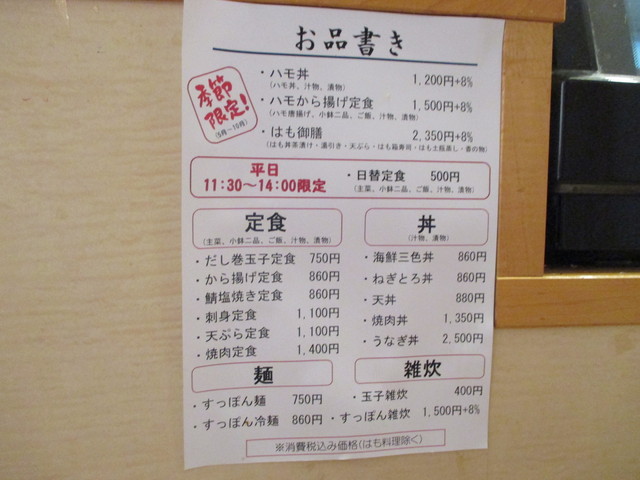 お品書き
季節
限定!
(5月~10月)
・ハモ丼 1,200円+8%
(ハモ丼、汁物、漬物)
・ハモから揚げ定食 1,500円+8%
(ハモ唐揚げ、小鉢二品、ご飯、汁物、漬物)
・はも御膳 2,350円+8%
(はも丼茶漬け・湯引き・天ぷら・はも箱寿司・はも土瓶蒸し・香の物)
平日
11:30~14:00限定
・日替定食 500円
(主菜、小鉢二品、ご飯、汁物、漬物)
定食
(主菜、小鉢二品、ご飯、汁物、漬物)
・だし巻玉子定食 750円
・から揚げ定食 860円
・鯖塩焼き定食 860円
・刺身定食 1,100円
・天ぷら定食 1,100円
・焼肉定食 1,400円
丼
(汁物、漬物)
・海鮮三色丼 860円
・ねぎとろ丼 860円
・天丼 880円
・焼肉丼 1,350円
・うなぎ丼 2,500円
麺
・すっぽん麺 750円
・すっぽん冷麺 860円
雑炊
・玉子雑炊 400円
・すっぽん雑炊 1,500円+8%
※消費税込み価格(はも料理除く)